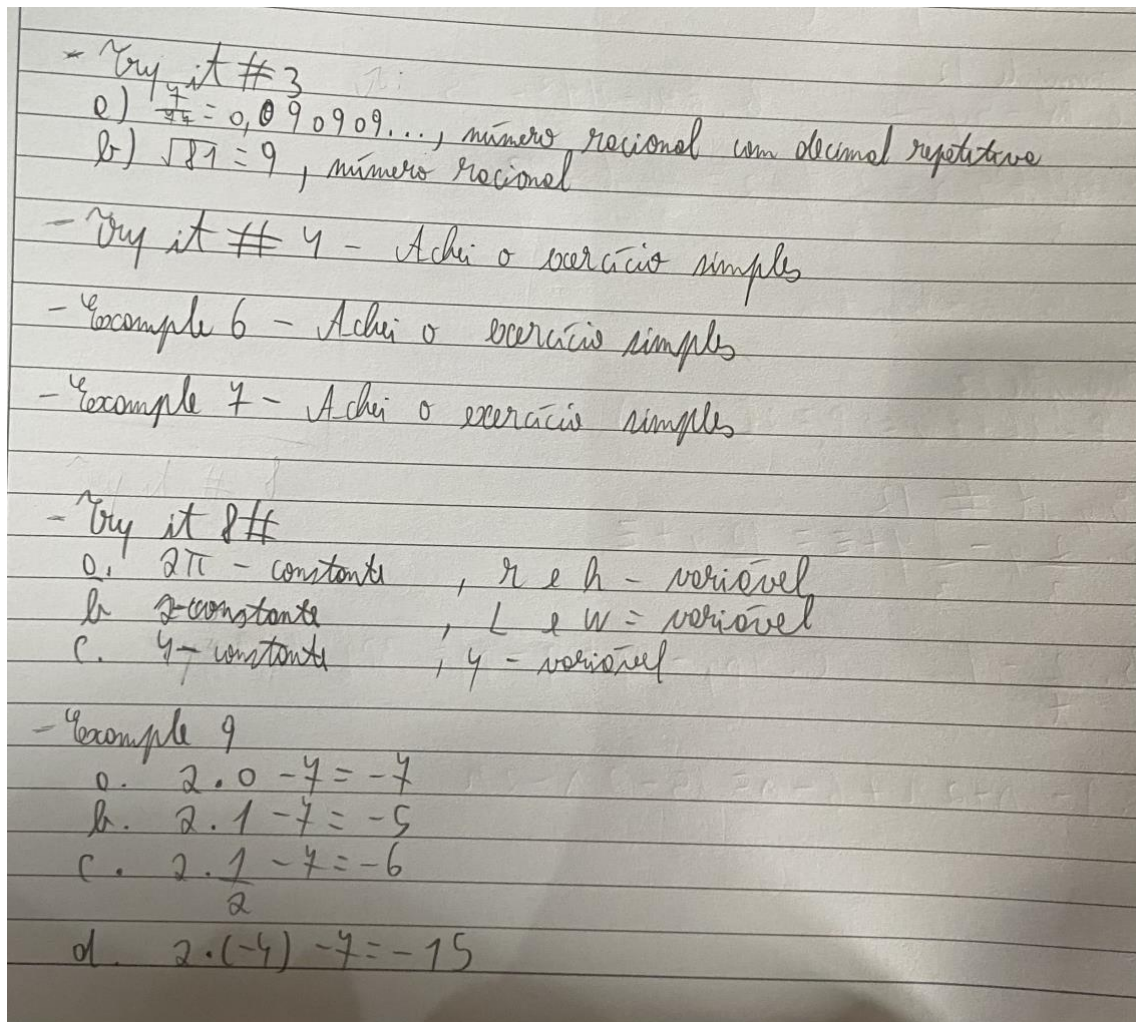 - Try it #3
a) 7/77 = 0,090909..., número racional com decimal repetitiva
b) √81 = 9, número racional
- Try it # 4 - Achei o exercício simples
- Example 6 - Achei o exercício simples
- Example 7 - Achei o exercício simples
- Try it 8#
a. 2π - constante , r e h - variável
b 2-constante , L e W = variável
c. 4 - constante , y - variável
- Example 9
a. 2.0 - 7 = -7
b. 2.1 - 7 = -5
c. 2.1/2 - 7 = -6
d. 2.(-4) - 7 = -15